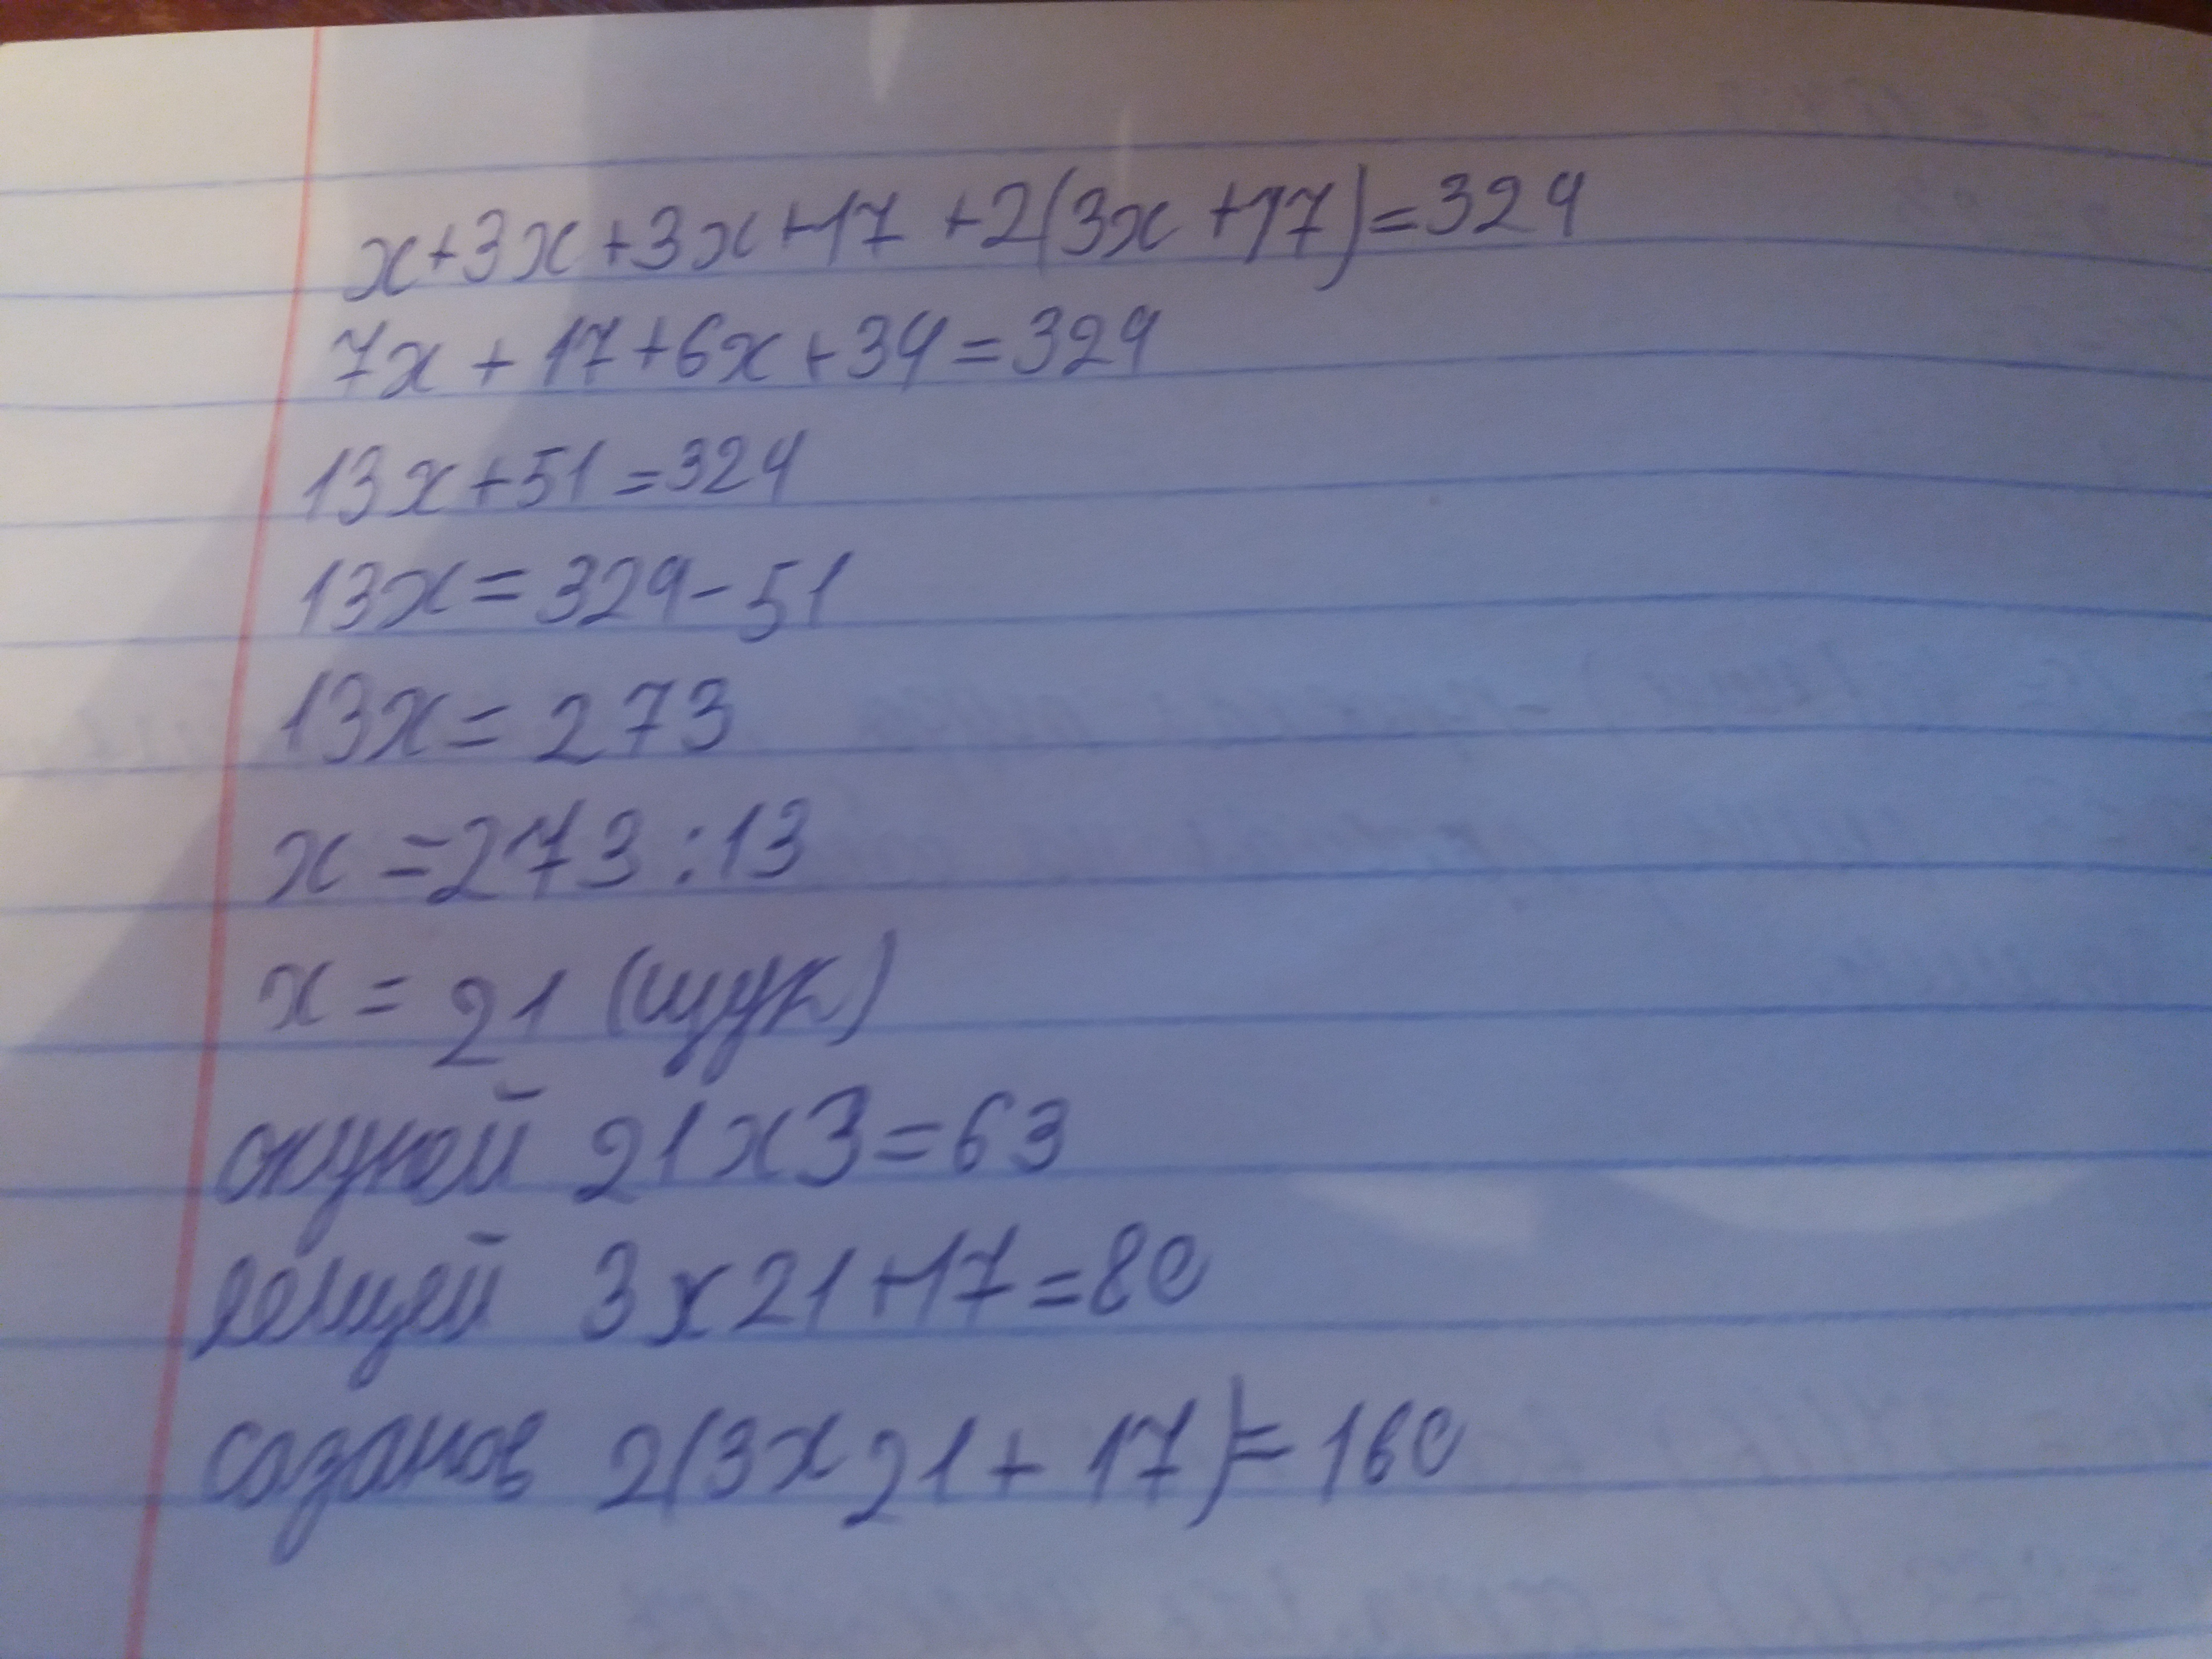 x+3x+3x+17+2(3x+17)=324
7x+17+6x+34=324
13x+51=324
13x=324-51
13x=273
x=273:13
x=21 (щук)
окуней 21x3=63
лещей 3x21+17=80
сазанов 2(3x21+17)=160